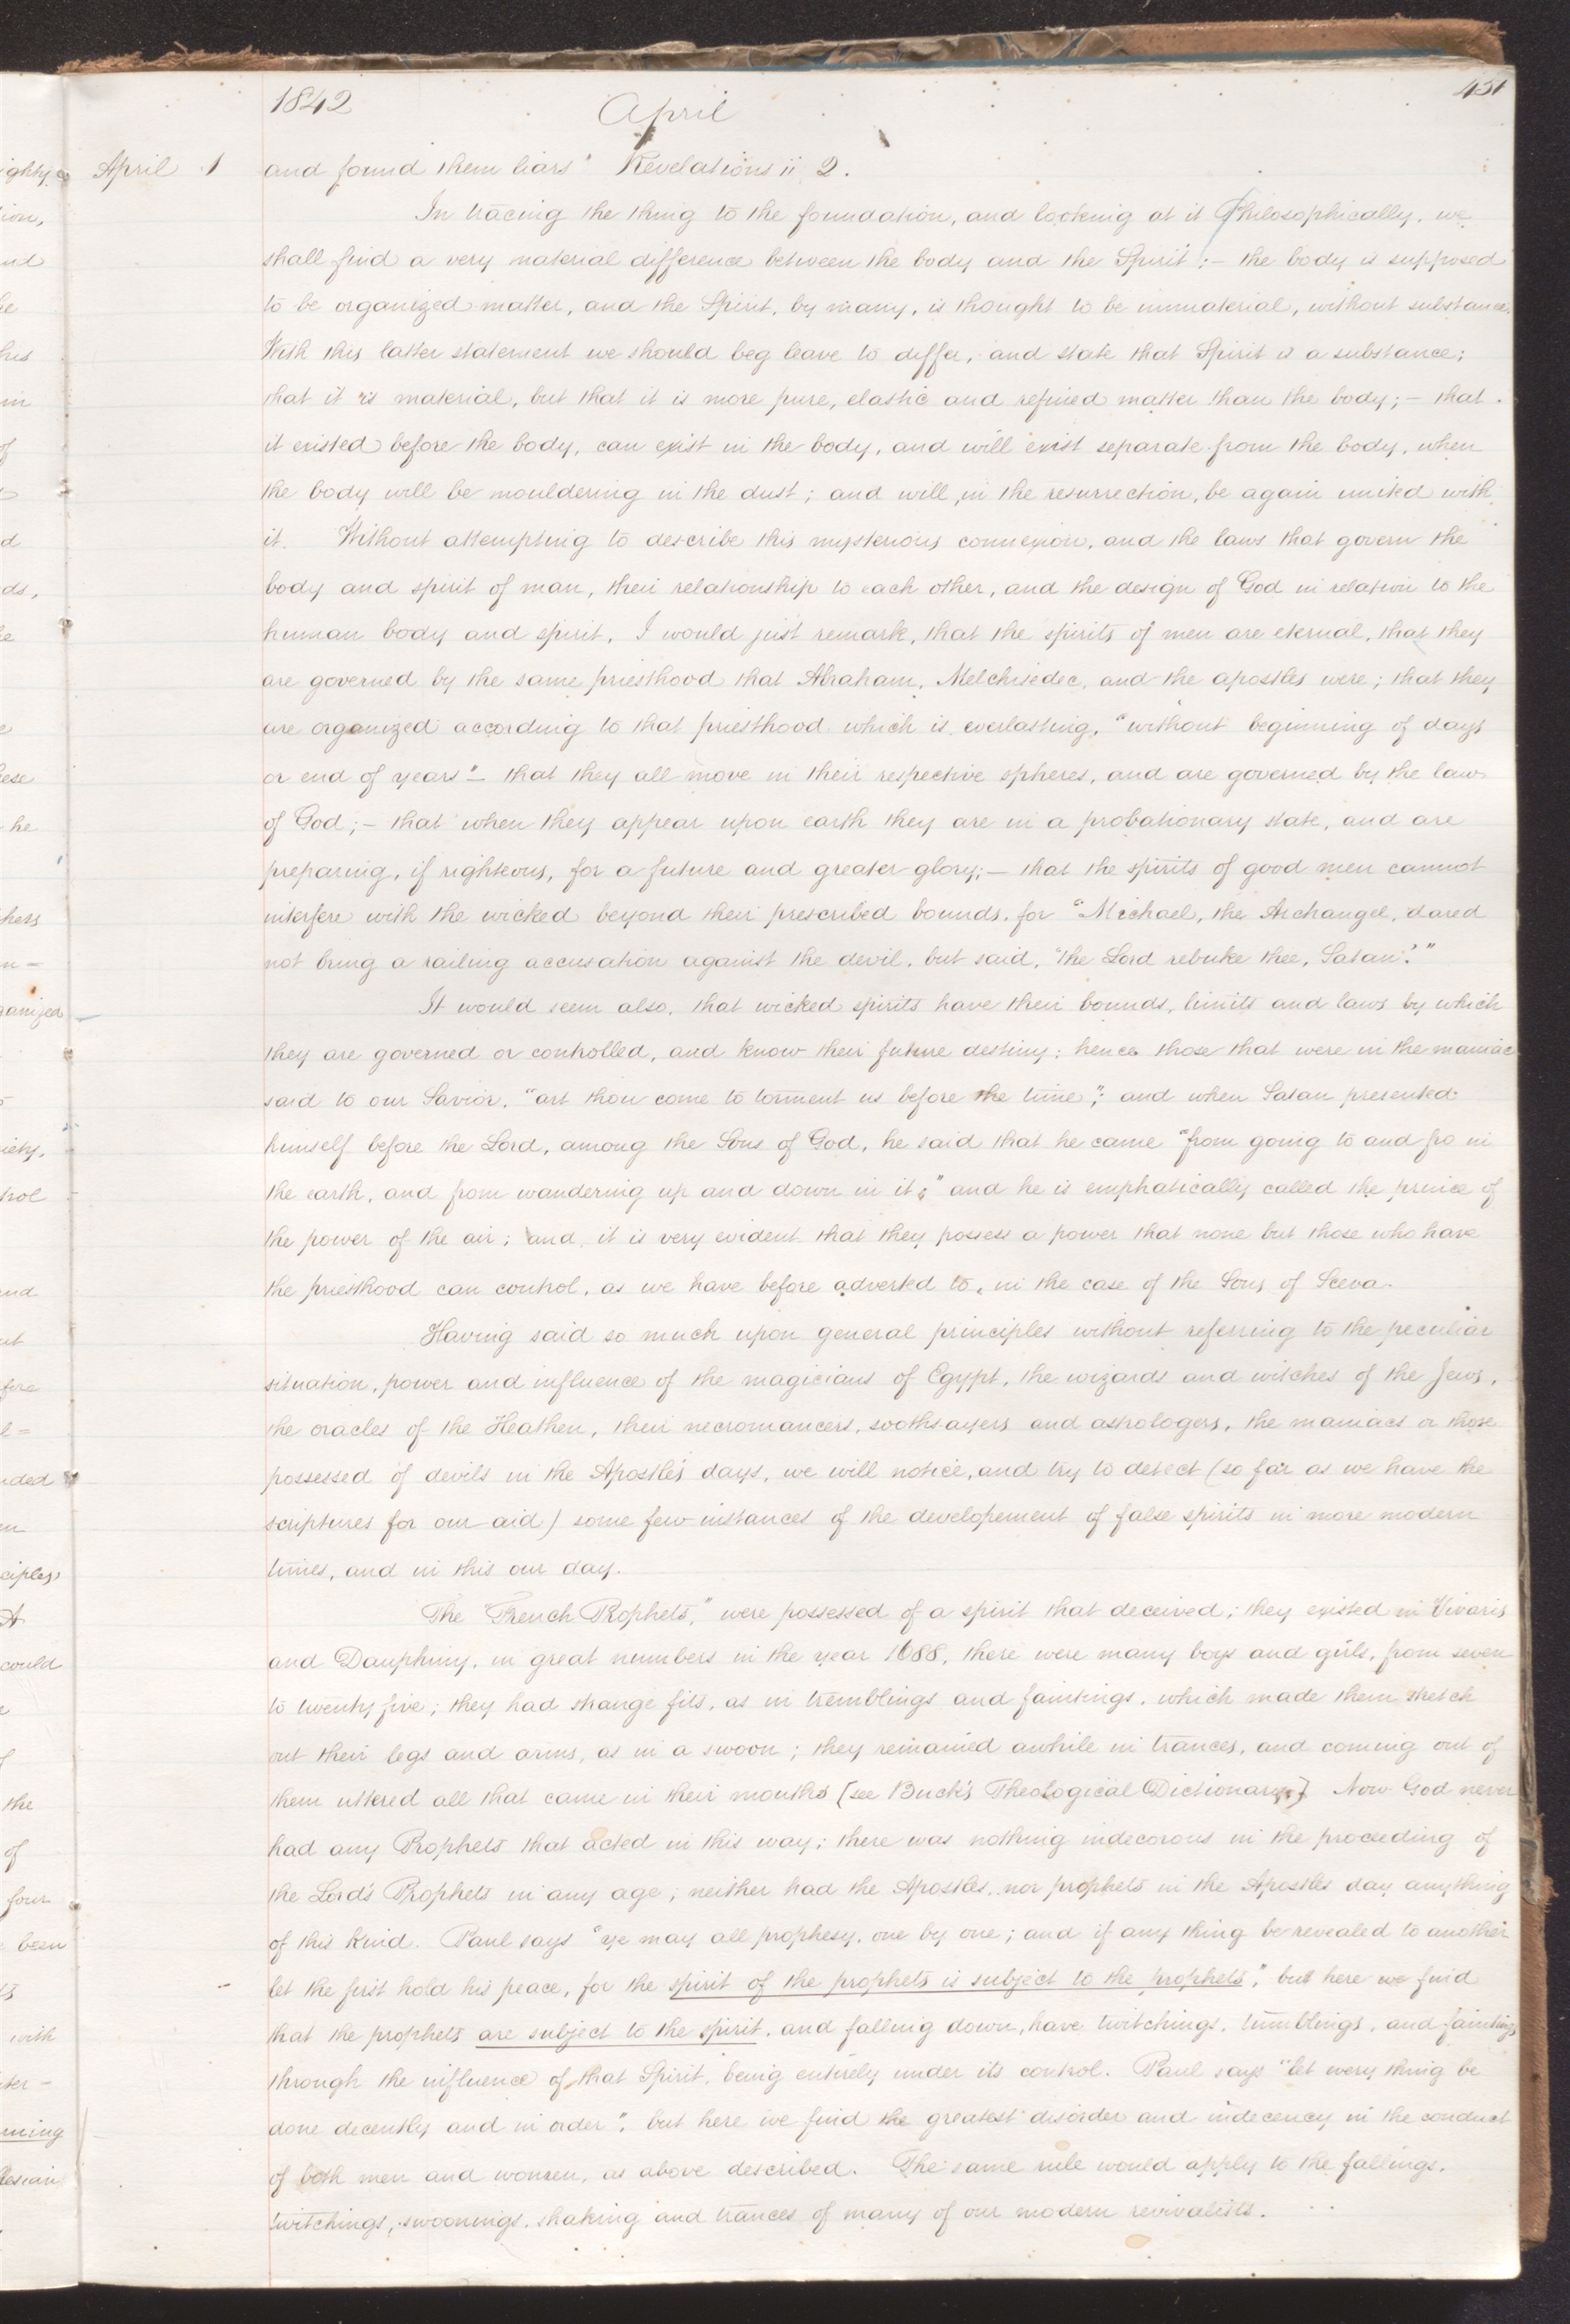 1842 April 451
April 1 and found them liars" Revelations ii 2.
In tracing the thing to the foundation, and looking at it Philosophically, we
shall find a very material difference between the body and the Spirit:— the body is supposed
to be organized matter, and the Spirit, by many, is thought to be immaterial, without substance.
With this latter statement we should beg leave to differ, and state that Spirit is a substance;
that it is material, but that it is more pure, elastic and refined matter than the body;— that
it existed before the body, can exist in the body, and will exist separate from the body, when
the body will be mouldering in the dust; and will, in the resurrection, be again united with
it. Without attempting to describe this mysterious connexion, and the laws that govern the
body and spirit of man, their relationship to each other, and the design of God in relation to the
human body and spirit, I would just remark, that the spirits of men are eternal, that they
are governed by the same priesthood that Abraham, Melchisedec, and the apostles were; that they
are organized according to that priesthood which is everlasting, "without beginning of days
or end of years"— that they all move in their respective spheres, and are governed by the law
of God;— that when they appear upon earth they are in a probationary state, and are
preparing, if righteous, for a future and greater glory;— that the spirits of good men cannot
interfere with the wicked beyond their prescribed bounds, for "Michael, the Archangel, dared
not bring a railing accusation against the devil, but said, "the Lord rebuke thee, Satan."
It would seem also, that wicked spirits have their bounds, limits and laws by which
they are governed or controlled, and know their future destiny; hence those that were in the maniac
said to our Savior, "art thou come to torment us before the time"; and when Satan presented
himself before the Lord, among the Sons of God, he said that he came "from going to and fro in
the earth, and from wandering up and down in it;" and he is emphatically called the prince of
the power of the air; and, it is very evident that they possess a power that none but those who have
the priesthood can control, as we have before adverted to, in the case of the Sons of Sceva.
Having said so much upon general principles without referring to the peculiar
situation, power and influence of the magicians of Egypt, the wizards and witches of the Jews,
the oracles of the Heathen, their necromancers, soothsayers and astrologers, the maniacs or those
possessed of devils in the Apostle's days, we will notice, and try to detect (so far as we have the
scriptures for our aid) some few instances of the developement of false spirits in more modern
times, and in this our day.
The "French Prophets," were possessed of a spirit that deceived; they existed in Vivaris
and Dauphiny, in great numbers in the year 1688, there were many boys and girls, from seven
to twenty five; they had strange fits, as in tremblings and faintings, which made them stretch
out their legs and arms, as in a swoon; they remained awhile in trances, and coming out of
them uttered all that came in their mouths [see Buck's Theological Dictionary.] Now God never
had any Prophets that acted in this way; there was nothing indecorous in the proceeding of
the Lord's Prophets in any age; neither had the Apostles, nor prophets in the Apostles day anything
of this kind. Paul says "ye may all prophesy, one by one; and if any thing be revealed to another
let the first hold his peace, for the spirit of the prophets is subject to the prophets," but here we find
that the prophets are subject to the spirit, and falling down, have twitchings, tumblings, and faintings
through the influence of that Spirit, being entirely under its control. Paul says "let every thing be
done decently and in order", but here we find the greatest disorder and indecency in the conduct
of both men and women, as above described. The same rule would apply to the fallings,
twitchings, swoonings, shaking and trances of many of our modern revivalists.